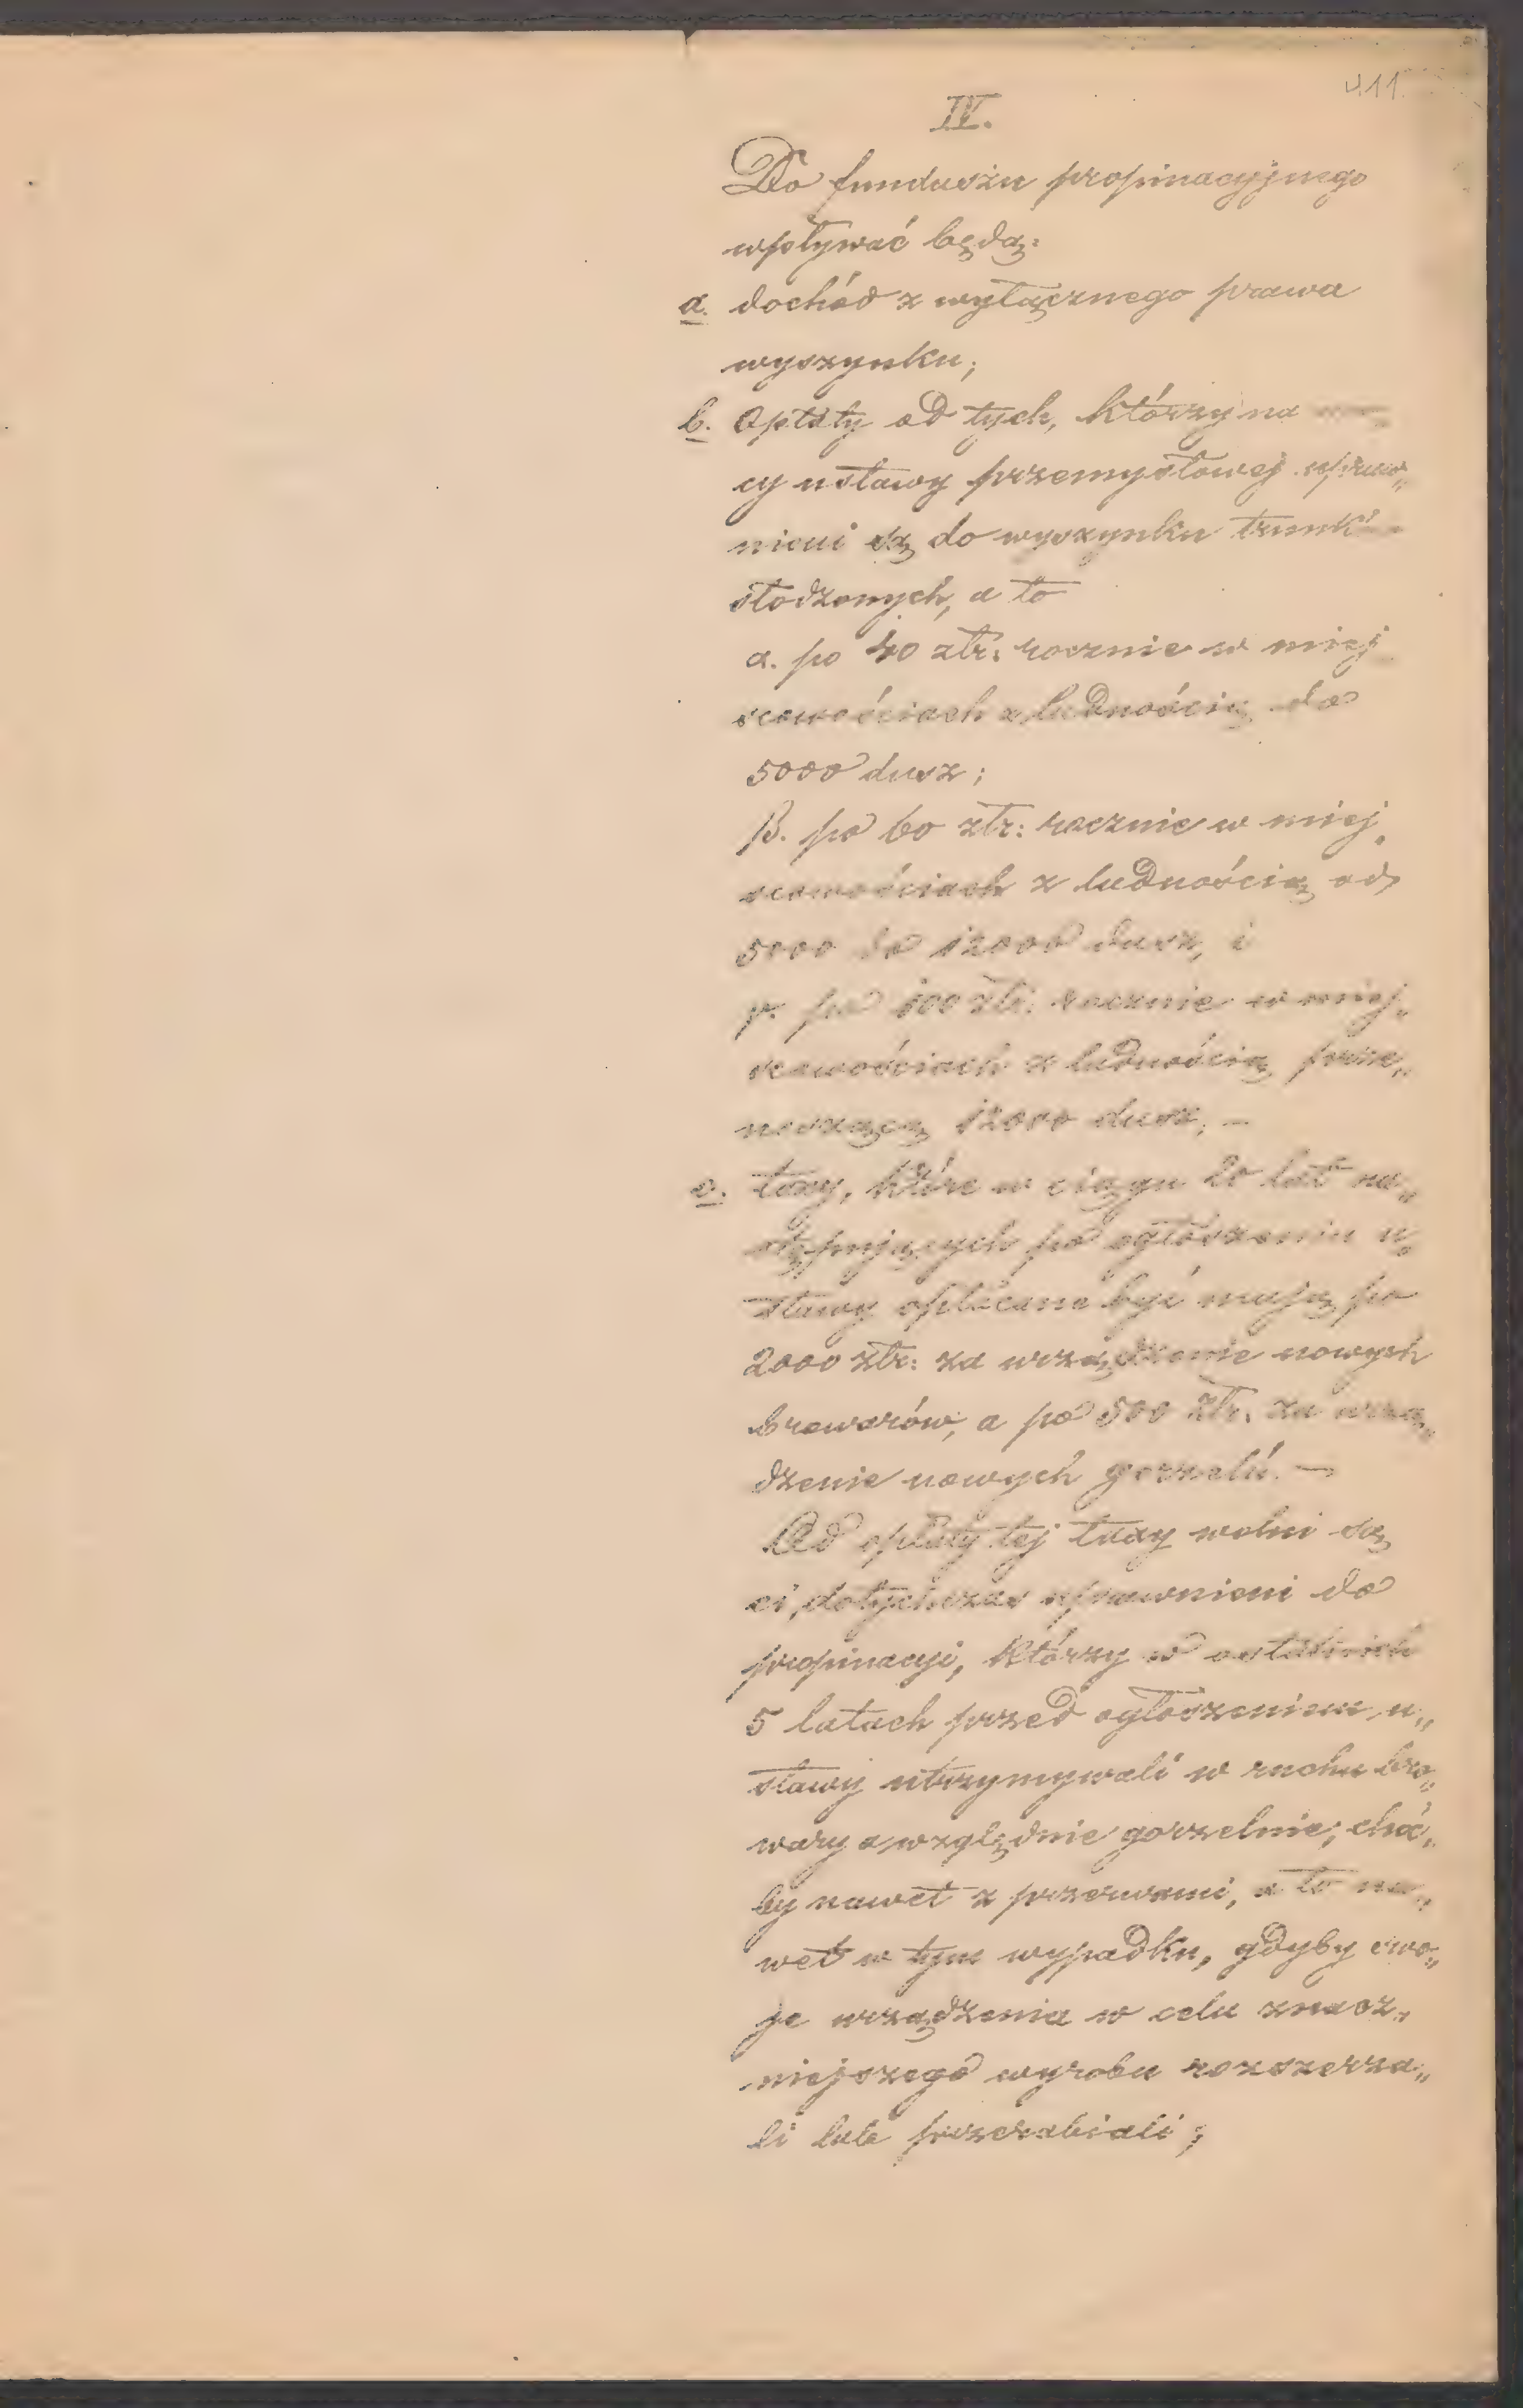 411.
IV.
Do funduszu propinacyjnego
wpływać będą:
a. dochód z wyłącznego prawa
wyszynku;
b. Opłaty od tych, którzy na
cy ustawy przemysłowej upraw„
nieni są do wyszynku trunk
słodzonych, a to
α. po 40 złr. rocznie w miej
scowościach z ludnością do
5000 dusz;
β. po 60 złr: rocznie w miej„
scowościach z ludnością od
5000 do 12000 dusz, i
γ. po 100 złr. rocznie w miej„
scowościach z ludnością prze„
noszącą 12000 dusz, –
c. taxy, które w ciągu 20 lat na„
stępujących po ogłoszeniu u„
stawy opłacane być mają po
2000 złr: za urządzenie nowych
browarów, a po 500 złr. za urzą„
dzenie nowych gorzelń. –
Od opłaty tej taxy wolni są
ci, dotychczas uprawnieni do
propinacyi, którzy w ostatnich
5 latach przed ogłoszeniem u„
stawy utrzymywali w ruchu bro„
wary a względnie gorzelnie, choć„
by nawet z przerwami, a to na„
wet w tym wypadku, gdyby swo„
je urządzenia w celu znacz„
niejszego wyrobu rozszerza„
li lub przerabiali;